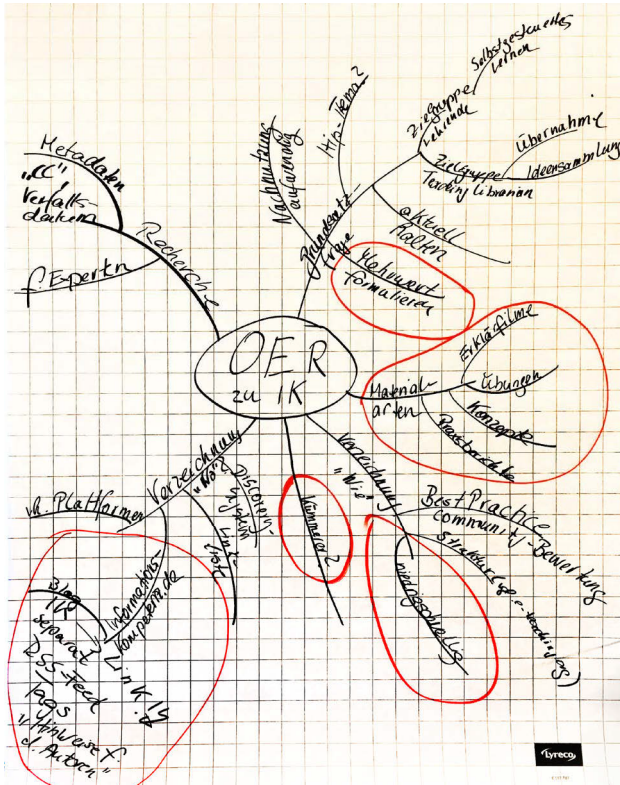 OER
zu IK
Recherche
Metadaten
"CC",
Verfalls-
datum
f. Experten
Grundsatz-
frage
Nachnutzung
Hip Thema?
Zielgruppe
Lehrende
Selbstgesteuertes
Lernen
Zielgruppe
Teaching Librarian
Übernahme
Ideensammlung
aktuell
halten
Mehrwert
formulieren
Material-
arten
Erklärfilme
Übungen
Konzepte
Praxisberichte
Verzeichnung
"Wie"
Best Practice
community-Bewertung
niedrigschwellig
Kümmerer?
Verzeichnung
"Wo"
Discovery-
System
vh. Plattformen
Informations-
kompetenz.de
Blog
IK
separat
RSS-Feed
Tags
"Hinweise f.
d. Autoren"
Lyreco